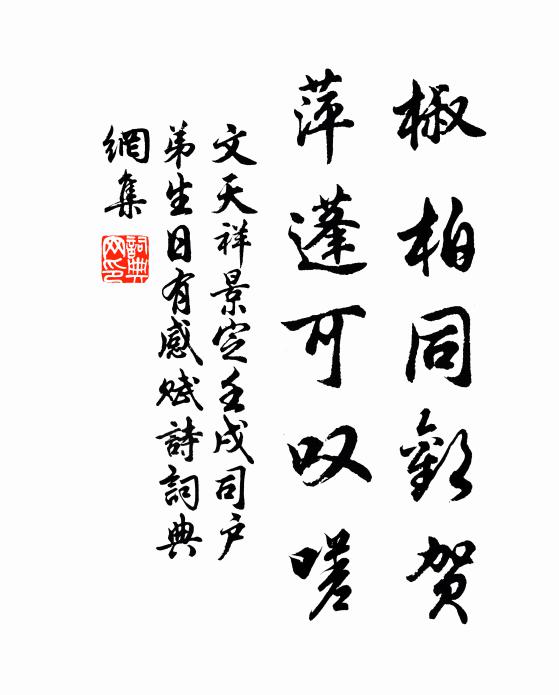 椒柏同歡賀
萍蓬可叹嗟
文天祥景定壬戌司户
弟生日有感赋詩詞典
網集
詞典
网印